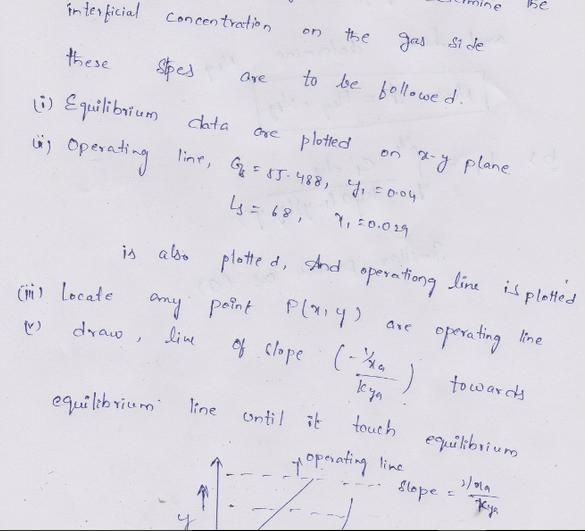 the
interficial concentration on the gas side
these stpes are to be followed.
(i) Equilibrium data are plotted on x-y plane
(ii) Operating line, Gs = 55.488, y1 = 0.04
Ls = 68, x1 = 0.029
is also plotted, And operationg line is plotted
(iii) Locate any point P(x, y) are operating line
(v) draw, line of slope (- kxa / kya) towards
equilibrium line until it touch equilibrium
operating line
slope = kxa / kya
y